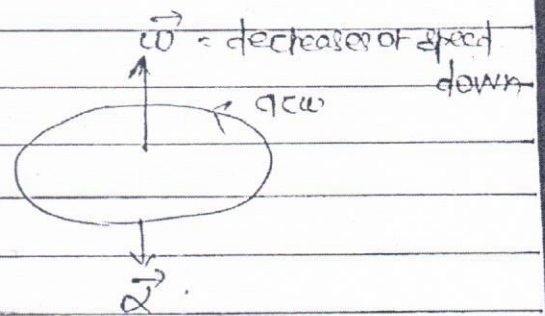 ω⃗ = decreases or speed
down
acw
α⃗.